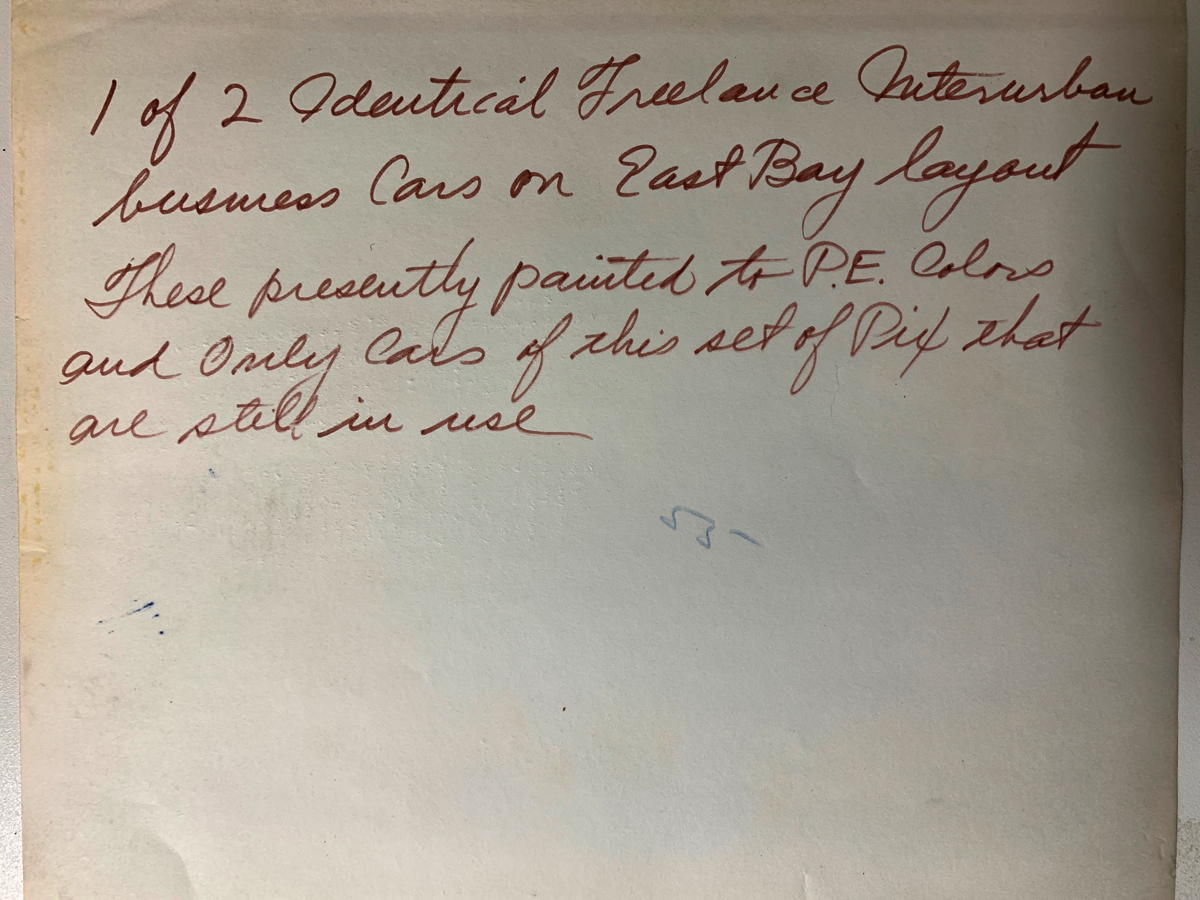 1 of 2 Identical Freelance Interurban
business Cars on East Bay layout
These presently painted to P.E. Colors
and Only Cars of this set of Pix that
are still in use
53-